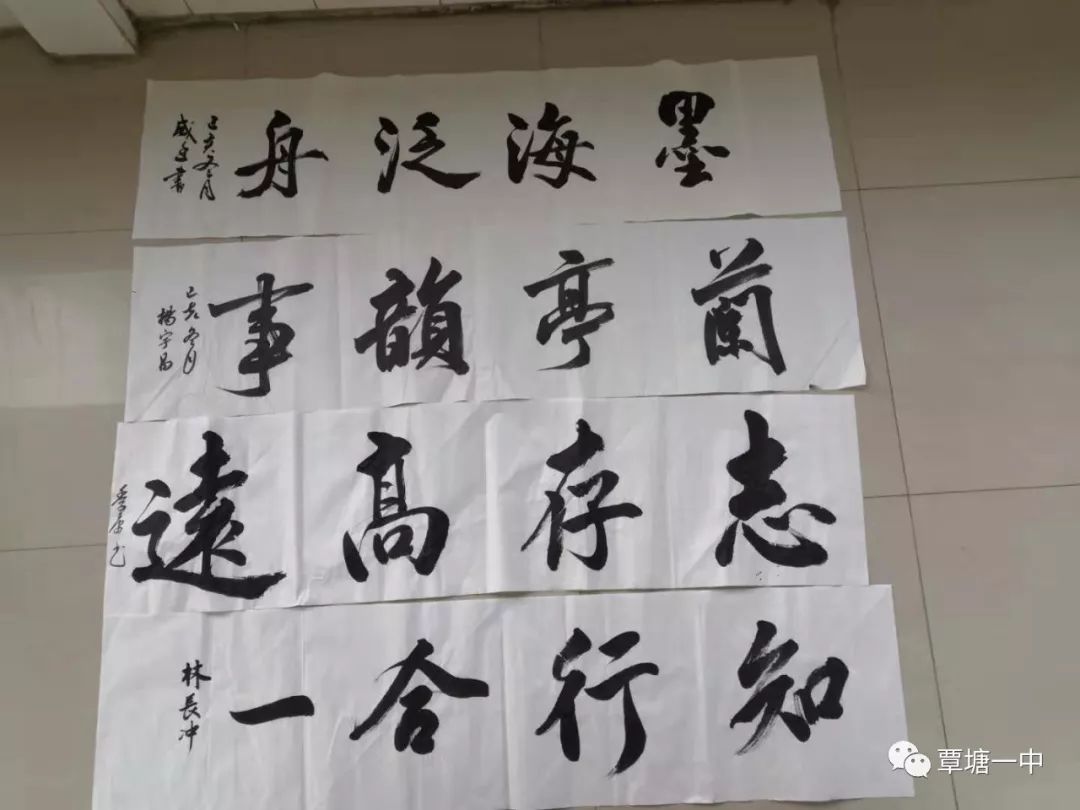 墨海泛舟
己亥冬月
蘭亭韻事
己亥冬月
楊宇昌
志存高遠
知行合一
林長冲
覃塘一中